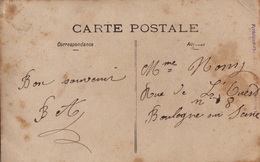 CARTE POSTALE
Correspondance
Adresse
Bon souvenir
B A
Mme Nony
Rue de La
n° 8
Boulogne sur Seine